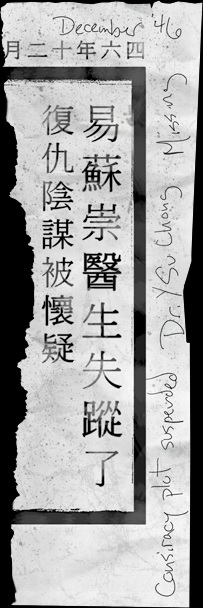 December '46
四六年十二月
易蘇崇醫生失蹤了
復仇陰謀被懷疑
Consiracy plot suspended Dr. Y Su Chong Missing